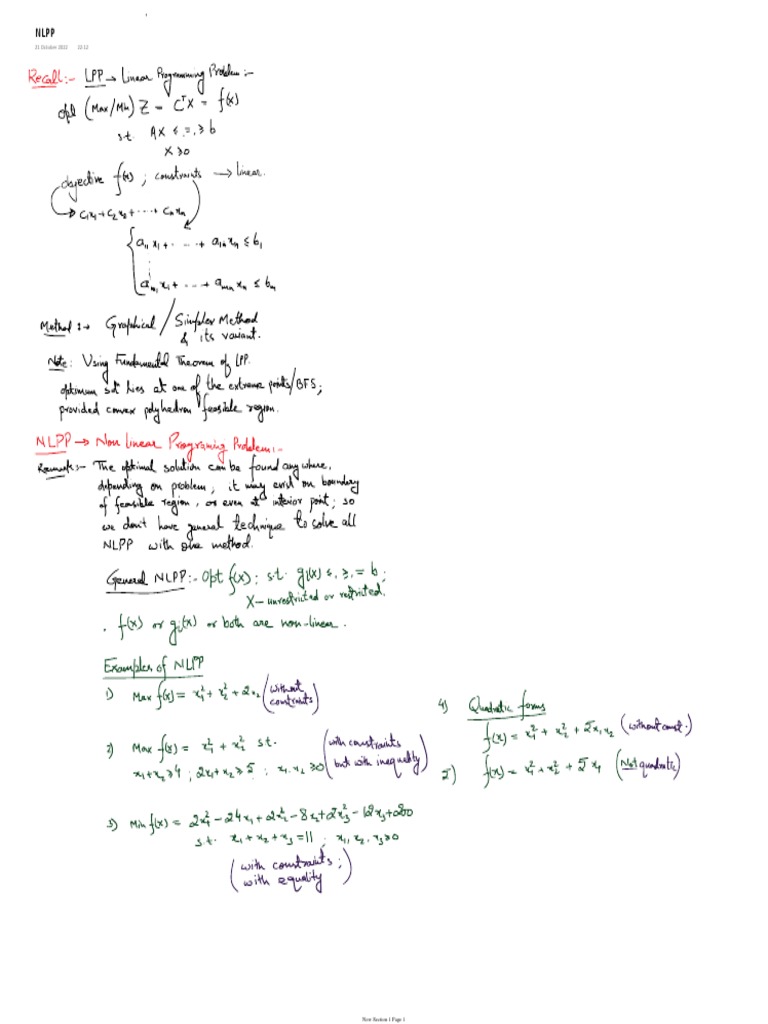 NLPP
21 October 2022 22:12
Recall:- LPP → Linear Programming Problem:-
opt (Max/Min) Z = CᵀX = f(x)
s.t. AX ≤, =, ≥ b
X ≥ 0
objective f(x) ; constraints → linear.
→ c₁x₁ + c₂x₂ + ... + cₙxₙ
a₁₁x₁ + ... + a₁ₙxₙ ≤ b₁
⋮
aₘ₁x₁ + ... + aₘₙxₙ ≤ bₘ
Method :→ Graphical / Simplex Method
& its variant.
Note: Using Fundamental Theorem of LPP.
optimum sol lies at one of the extreme points/BFS;
provided convex polyhedron feasible region.
NLPP → Non linear Programing Problem:-
Remark:- The optimal solution can be found any where,
depending on problem, it may exist on boundary
of feasible region, or even at interior point; so
we don't have general technique to solve all
NLPP with one method.
General NLPP:- Opt f(x); s.t. gᵢ(x) ≤, ≥, = b;
X - unrestricted or restricted.
. f(x) or gᵢ(x) or both are non-linear.
Examples of NLPP
1) Max f(x) = x₁² + x₂² + 2x₂ (without
constraints)
2) Max f(x) = x₁² + x₂² s.t. (with constraints
x₁+x₂ ≥ 4 ; 2x₁+x₂ ≥ 5 ; x₁, x₂ ≥ 0 but with inequality)
3) Min f(x) = 2x₁² - 24x₁ + 2x₂² - 8x₂ + 2x₃² - 12x₃ + 200
s.t. x₁ + x₂ + x₃ = 11 ; x₁, x₂, x₃ ≥ 0
(with constraints ;
with equality)
4) Quadratic forms
f(x) = x₁² + x₂² + 5x₁x₂ (without const.)
5) f(x) = x₁² + x₂² + 5x₁ (Not quadratic)
New Section 1 Page 1